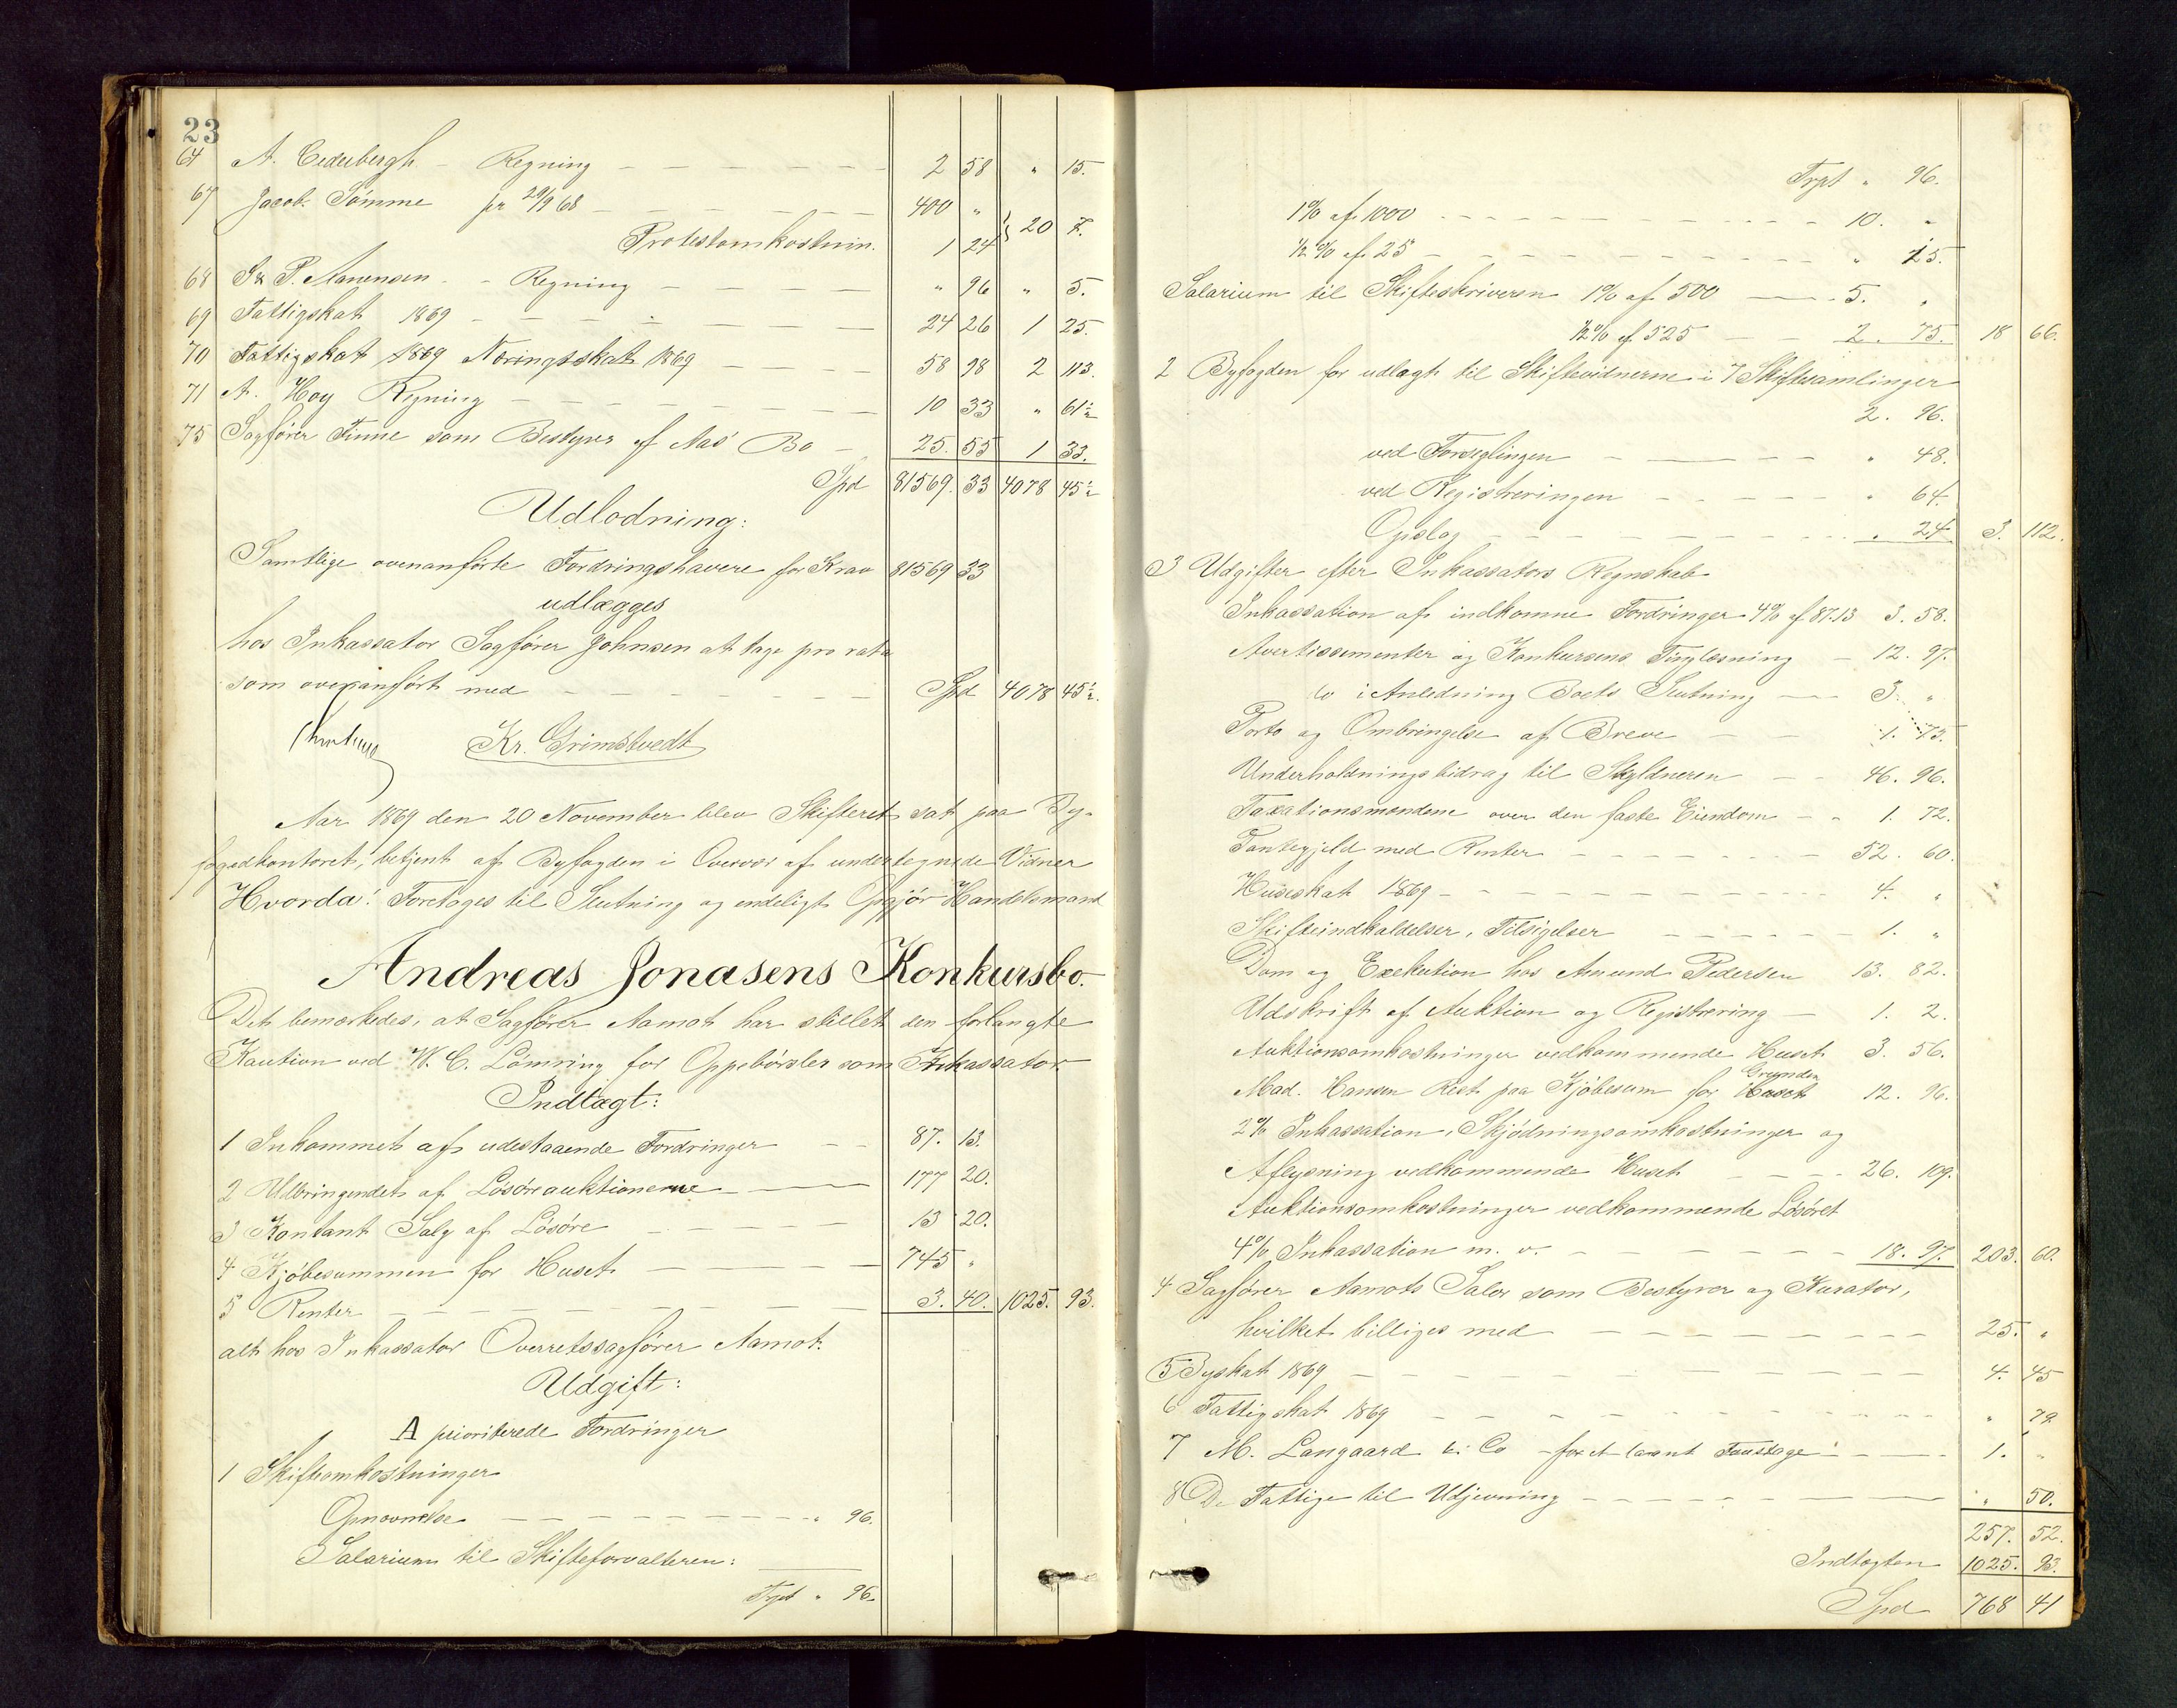 23
64 A. Cederbergh - Regning - - - - 2 58 " 15.
67 Jacob Sømme pr 29/9 68 - - - - 400 "
Protestomkostnin. 1 24 } 20 7.
68 P. Aanensen - Regning - - - - " 96 " 5.
69 Fattigskat 1869 - - - - 24 26 1 25.
70 Fattigskat 1869 Næringsskat 1869 - - - - 58 98 2 113.
71 A. Høy Regning - - - - 10 33 " 61½
75 Sagfører Finne som Bestyrer af Aas' Bo - 25. 55 1 33.
Spd 81569. 33 4078 45½
Udlodning:
Samtlige ovenanførte Fordringshavere for Krav 81569 33
udlægges
hos Inkassator Sagfører Johnsen at tage pro rata
som ovenanført med - - - - Spd 4078 45½.
Kr. Grimstvedt
Aar 1869 den 20 November blev Skifteret sat paa By-
fogedkontoret, betjent af Byfogden i Overvær af undertegnede Vidner
Hvorda: Foretages til Slutning og endeligt Opgjør Handelsmand
Andreas Jonasens Konkursbo.
Det bemærkedes, at Sagfører Aamot har stillet den forlangte
Kaution ved W. C. Lömring for Oppebørsler som Inkassator
Indtægt:
1 Inkommet af udestaaende Fordringer - - 87. 13.
2 Udbringendet af Løsøreauktionerne - - 177 20.
3 Kontant Salg af Løsøre - - - - 13 20.
4 Kjøbesummen for Huset - - - - 745 "
5 Renter - - - - 3. 40. 1025. 93.
alt hos Inkassator Overretssagfører Aamot.
Udgift:
A prioriterede Fordringer
1 Skifteomkostninger
Opnævnelse - - - - " 96.
Salarium til Skifteforvalteren:
Trpt " 96.
Trpt " 96.
1% af 1000 - - - - 10. "
½% af 25 - - - - " 15.
Salarium til Skifteskriveren 1% af 500 - - 5. "
½% af 525 - - 2. 75. 18 66.
2 Byfogden for udlagt til Skiftevidnerne i 7 Skiftesamlinger
2. 96.
ved Forseglingen - - - - " 48.
ved Registreringen - - - - " 64.
Opslag - - - - " 24 3. 112.
3 Udgifter efter Inkassators Regnskab
Inkassation af indkomne Fordringer 4% af 87.13 3. 58.
Avertissementer og Konkursens Tinglæsning - 12. 97.
do i Anledning Boets Slutning - - 3. "
Porto og Ombringelse af Breve - - 1. 73.
Underholdningsbidrag til Skyldneren - - 46. 96.
Taxationsmændene over den faste Eiendom - - 1. 72.
Pantegjeld med Renter - - - - 52. 60.
Huseskat 1869 - - - - 4. "
Skifteindkaldelser, Tilsigelser - - - - 1. "
Dom og Exekution hos Amund Pedersen 13. 82.
Udskrift af Auktion og Registrering - 1. 2.
Auktionsomkostninger vedkommende Huset 3. 56.
Mad. Hansen Rest paa Kjøbesum for Huset Grunden 12. 96.
2% Inkassation, Skjødningsomkostninger og
Aflysning vedkommende Huset - - - 26. 109.
Auktionsomkostninger vedkommende Løsøret
4% Inkassation m. v. - - - - 18. 97. 203. 60.
4 Sagfører Aamots Salær som Bestyrer og Kurator,
hvilket billiges med - - - - 25. "
5 Byskat 1869 - - - - 4. 45
6 Fattigskat 1869 - - - - " 79
7 M. Langaard & Co - for et laant Fustage - - - 1. "
8 De Fattige til Udjevning - - - - " 50.
257. 52.
Indtægten 1025. 93.
Spd 768 41